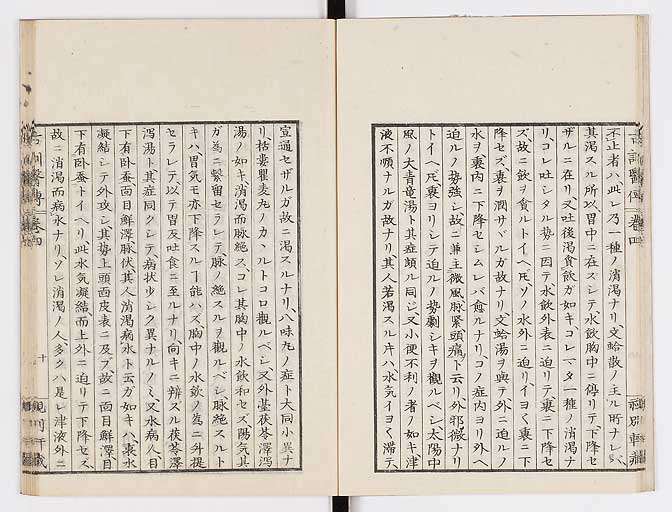 不止者ハ此レ乃一種ノ消渇ナリ文蛤散ノ主ル所ナレバ
其渇スル所以胃中ニ在スシテ水飲胸中ニ停リテ下降セ
ザルニ在リ又吐後渇貪飲ガ如キコレマタ一種ノ消渇ナ
リコレ吐シタル勢ニ因テ水飲外表ニ迫リテ裏ニ下降セ
ズ故ニ飲ヲ貪ルトイヘ𪜈ソノ水外ニ迫リイヨく裏ニ下
降セズ裏ヲ潤サヾルガ故ナリ文蛤湯ヲ與テ外ニ迫ルノ
水ヲ裏内ニ下降セシムレバ愈ルナリコノ症内ヨリ外ヘ
迫ルノ勢強シ故ニ兼主微風脉緊頭痛ト云リ外邪微ナリ
トイヘ𪜈裏ヨリシテ迫ルノ勢劇シキヲ觀ルベシ太陽中
風ノ大青竜湯ト其症頗ル同ジ又小便不利ノ者ノ如キ津
液不順ナルガ故ナリ其人若渇スルキハ水気イヨく滞テ
宣通セザルガ故ニ渇スルナリ八味丸ノ症ト大同小異ナ
リ栝蔞瞿麦丸ノカヽルトコロ觀ルベシ又外䑓茯苓澤瀉
湯ノ如キ消渇而脉絶スコレ其胸中ノ水飲和セズ陽気其
ガ為ニ緊留セラレテ脉ノ絶スルヲ觀ルベシ脉絶スルト
キハ胃気モ亦下降スルヿ能ハズ胸中ノ水飲ノ為ニ升提
セラレテ以テ胃反吐食ニ至ルナリ向キニ辨スル茯苓澤
瀉湯ト其症同クシテ病状少シク異ナルノミ又水病人目
下有臥蚕面目鮮澤脉伏其人消渇病水ト云ガ如キハ裏水
凝結シテ外攻シ其勢上頭面皮表ニ及ブ故ニ面目鮮澤目
下有臥蚕トイヘリ此水気凝結而上外ニ迫リテ下降セズ
故ニ消渇而病水ナリソレ消渇ノ人多クハ是レ津液外ニ